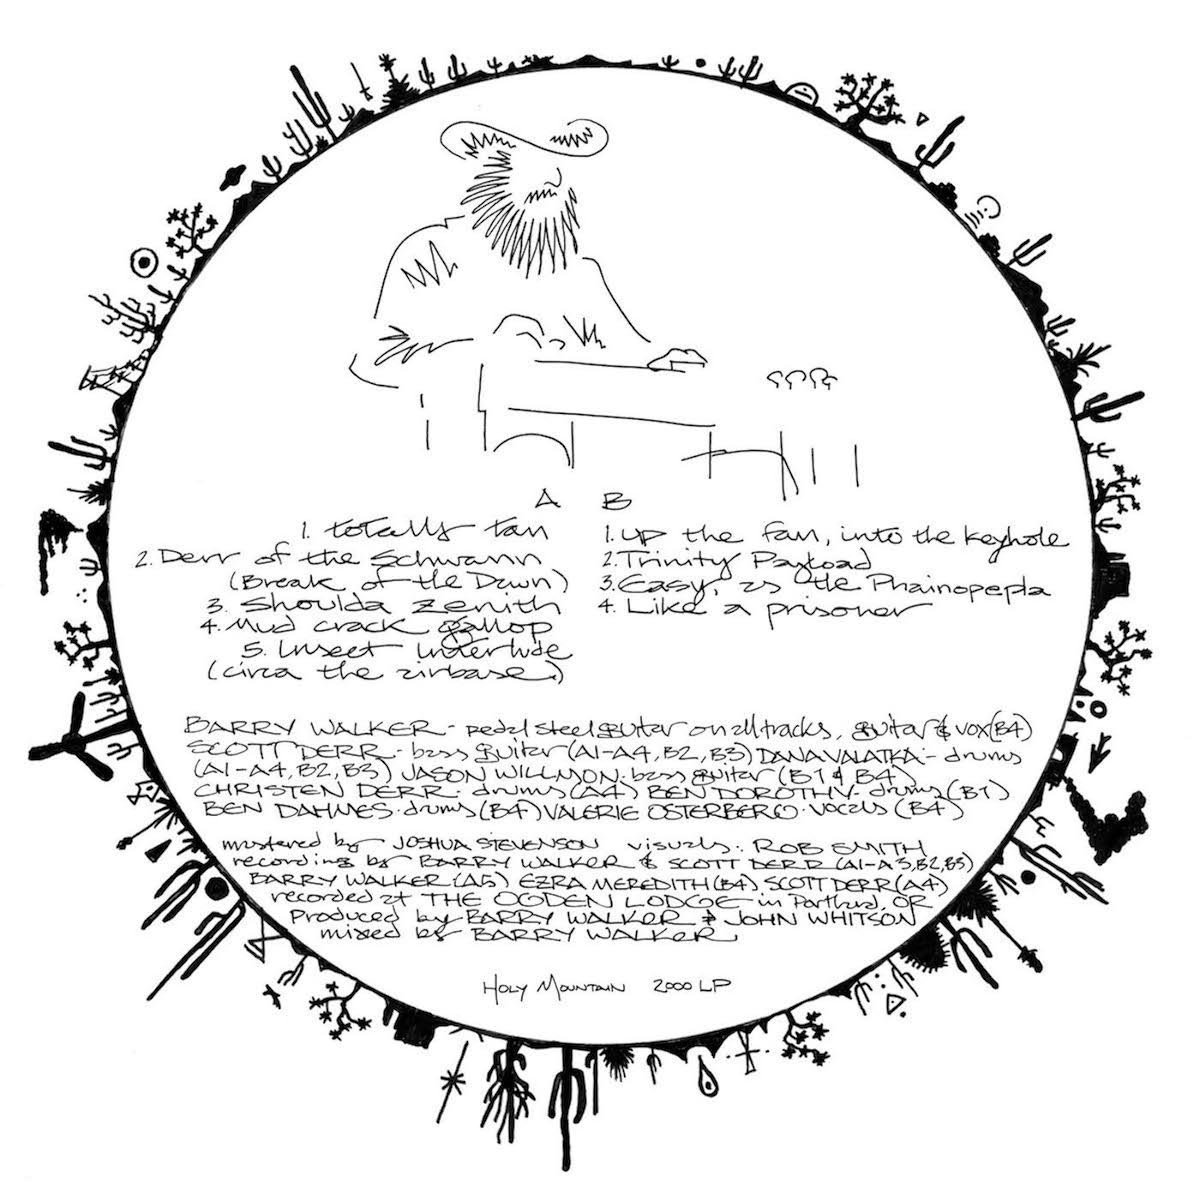 A
1. totally tan
2. Derr of the Schwann
(Break of the Dawn)
3. Shoulda Zenith
4. Mud crack gallop
5. Insect interlude
(circa the zirbase)
B
1. up the fan, into the keyhole
2. Trinity Payload
3. Easy, as the Phainopepla
4. Like a prisoner
BARRY WALKER - pedal steel guitar on all tracks, guitar & vox (B4)
SCOTT DERR - bass guitar (A1-A4, B2, B3) DANA VALATKA - drums
(A1-A4, B2, B3) JASON WILLMON - bass guitar (B1 & B4)
CHRISTEN DERR - drums (A4) BEN DOROTHY - drums (B1)
BEN DAHMES - drums (B4) VALERIE OSTERBERG - vocals (B4)
mastered by JOSHUA STEVENSON visuals: ROB SMITH
recordings by BARRY WALKER & SCOTT DERR (A1-A3, B2, B3)
BARRY WALKER (A5) EZRA MEREDITH (B4) SCOTT DERR (A4)
recorded at THE OGDEN LODGE in Portland, OR
Produced by BARRY WALKER & JOHN WHITSON
mixed by BARRY WALKER
HOLY MOUNTAIN 2000 LP